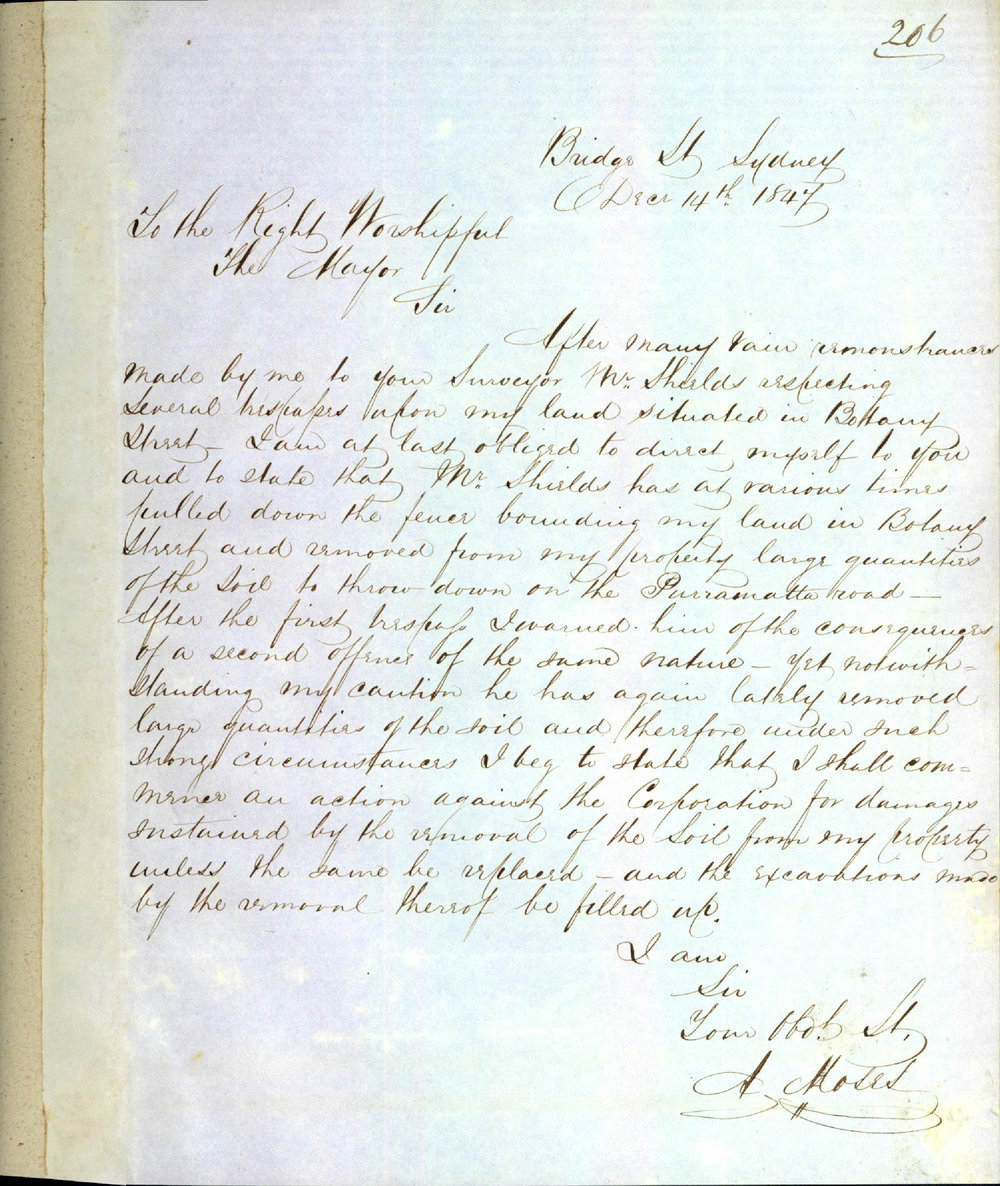 206
Bridge St Sydney
Decr 14th 1847
To the Right Worshipful
The Mayor
Sir
After many vain remonstrances
made by me to your Surveyor Mr. Shields respecting
several trespasses upon my land situated in Bottany
Street – I am at last obliged to direct myself to you
and to state that Mr Shields has at various times
pulled down the fence bounding my land in Botany
Street and removed from my property large quantities
of the soil to throw down on the Purramatta road –
After the first trespass I warned him of the consequences
of a second offence of the same nature – yet notwith=
standing my caution he has again lately removed
large quantities of the soil and therefore under such
strong circumstances I beg to state that I shall com=
mence an action against the Corporation for damages
sustained by the removal of the Soil from my property
unless the same be replaced – and the excavations made
by the removal thereof be filled up.
I am
Sir
Your Obdt St,
A Moses